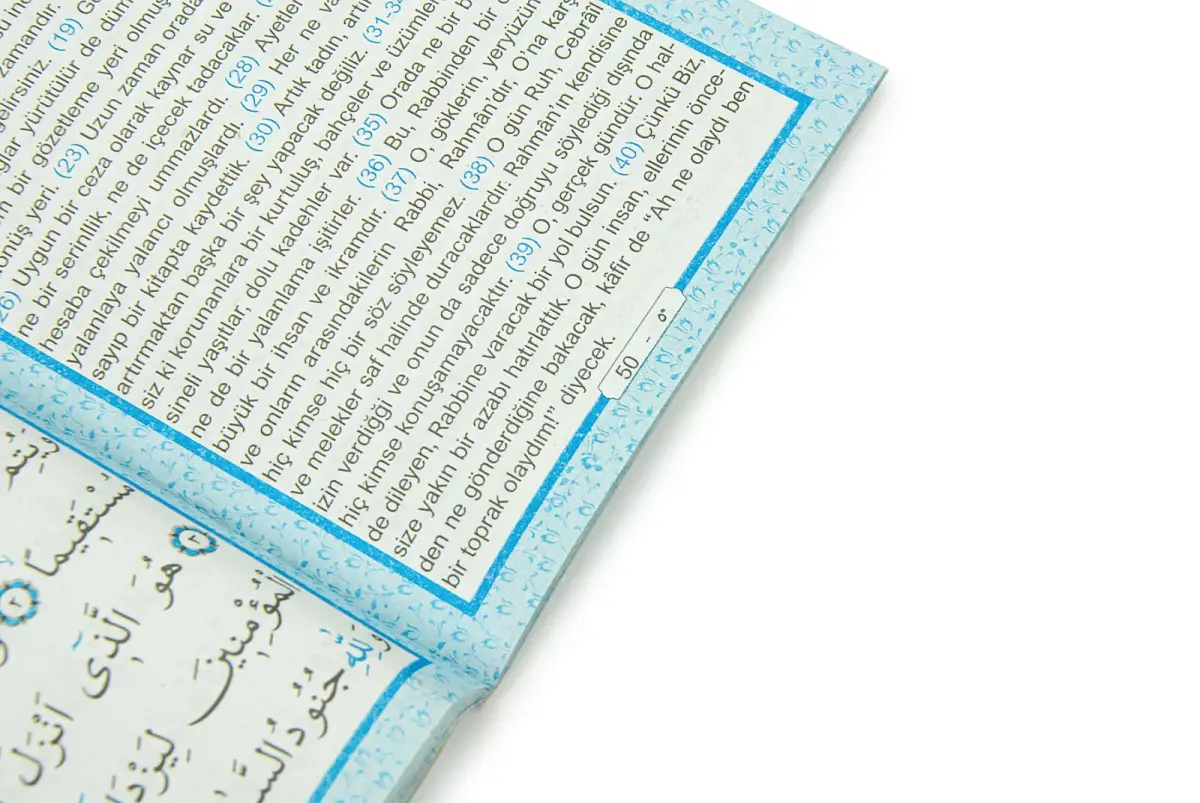 zamandır.
gelirsiniz. (19)
yürütülür de
bir gözetleme yeri
yeri. (23) Uzun zaman orada
Uygun bir ceza olarak kaynar su ve
ne bir serinlik, ne de içecek tadacaklar.
hesaba çekilmeyi ummazlardı. (28) Ayetler
yalanlaya yalancı olmuşlardı. (29) Her ne
sayıp bir kitapta kaydettik. (30) Artık tadın,
artırmaktan başka bir şey yapacak değiliz.
siz ki korunanlara bir kurtuluş, bahçeler ve üzümler
sineli yaşıtlar, dolu kadehler var. (35) Orada ne bir
ne de bir yalanlama işitirler. (36) Bu, Rabbinden bir
büyük bir ihsan ve ikramdır. (37) O, göklerin,
ve onların arasındakilerin Rabbi, Rahmân'dır, O'na
hiç kimse hiç bir söz söyleyemez. (38) O gün Ruh,
ve melekler saf halinde duracaklardır. Rahmân'ın kendisine
izin verdiği ve onun da sadece doğruyu söylediği dışında
hiç kimse konuşamayacaktır. (39) O, gerçek gündür. O hal-
de dileyen, Rabbine varacak bir yol bulsun. (40) Çünkü Biz,
size yakın bir azabı hatırlattık. O gün insan, ellerinin önce-
den ne gönderdiğine bakacak, kâfir de "Ah ne olaydı ben
bir toprak olaydım!" diyecek.
50 - ٥٠
مُسْتَقِيمًا ٢
٣ هُوَ الَّذِٓى اَنْزَلَ
الْمُؤْمِنِينَ لِيَزْدَا
وَلِلّٰهِ جُنُودُ السَّ